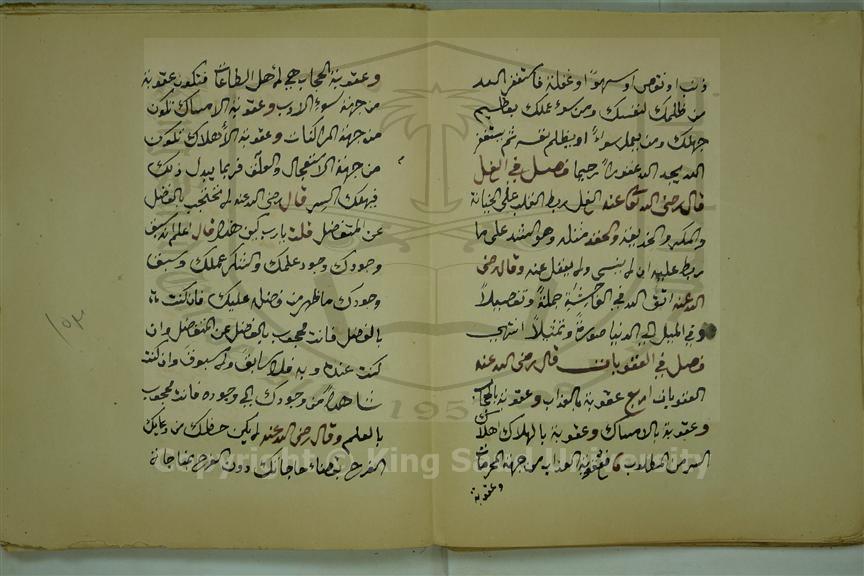 ذنب او نقص او سهوًا او غفلة فاستغفر الله
من ظلمك لنفسك ومن سوء عملك بعظيم
جهلك ومن يعمل سوءًا او يظلم نفسه ثم يستغفر
الله يجد الله غفورًا رحيما فصل في الغل
قال رضى الله تعالى عنه الغل ربط القلب على الخيانة
والمكر والخديعة والحقد مثله وهو العقد على ما
ربط عليه ان لا ينسى ولا يغفل عنه وقال رضى
الله عنه اتق الله في الفاحشة جملة وتفصيلاً
وفي الميل الى الدنيا صورة وتمثيلاً انتهى
فصل في العقوبات قال رضى الله عنه
العقوبات اربع عقوبة بالعذاب وعقوبة بالحجاب
وعقوبة بالامساك وعقوبة بالهلاك
السر من المطلوب فعقوبة العذاب من جهة المحرمات
وعقوبة
وعقوبة الحجاب هي لأهل الطاعات فتكون عقوبة
من جهة سوء الادب وعقوبة الامساك تكون
من جهة المراكنات وعقوبة الأهلاك تكون
من جهة الاستعجال والقلق فربما يبدل ذلك
فيهلك السر قال رضى الله عنه لا تحتجب بالفضل
عن المتفضل قلت يارب كيف هذا قال علم سبق
وجودك وجود علمك والشكر عملك وسبق
وجودك ما ظهر من فضله عليك فان كنت
بالفضل فانت محجوب بالفضل عن المتفضل وان
كنت عنده وبه فلا سابق ولا مسبوق وان كنت
شاهدا من وجودك الى وجوده فانت محجوب
بالعلم وقال رضى الله عنه لا يكن حظك من دعائك
الفرح بقضاء حاجاتك دون الفرح بمناجاته
١٥٢
Copyright © King Saud University
1957